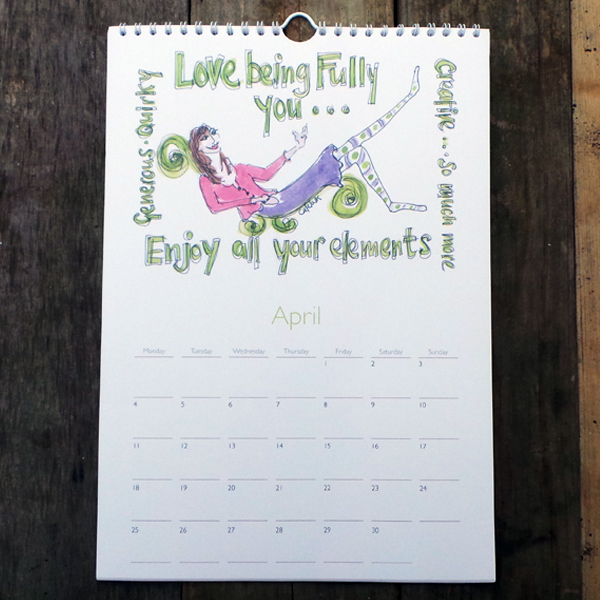 Love being Fully
you...
Generous. Quirky
Creative... so much more
CAREN
Enjoy all your elements
April
Monday Tuesday Wednesday Thursday Friday Saturday Sunday
1 2 3
4 5 6 7 8 9 10
11 12 13 14 15 16 17
18 19 20 21 22 23 24
25 26 27 28 29 30